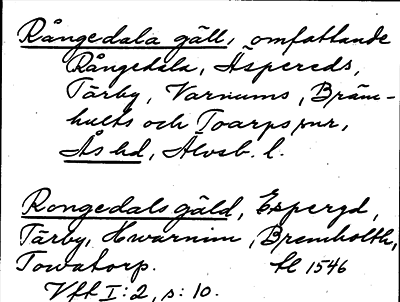 Rångedala gäll, omfattande
Rångedala, Äspereds,
Tärby, Varnums, Bräm-
hults och Toarps snr,
Ås hd, Älvsb. l.
Rongedals gäld, Espergd,
Tärby, Hwarnim, Bremholth,
Towatorp. tl 1546
Vft I:2, s: 10.